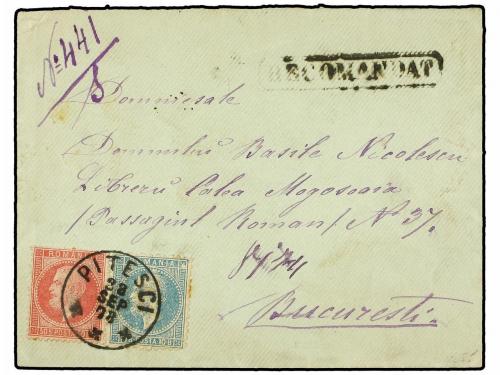 № 441
RECOMANDAT
Domniesale
Domnului Basile Nicolescu
Libreru Calea Mogosoaia
/Passagiul Roman/ № 37.
Bucuresti.
ROMANIA
PITESCI
28
SEP
ROMANIA